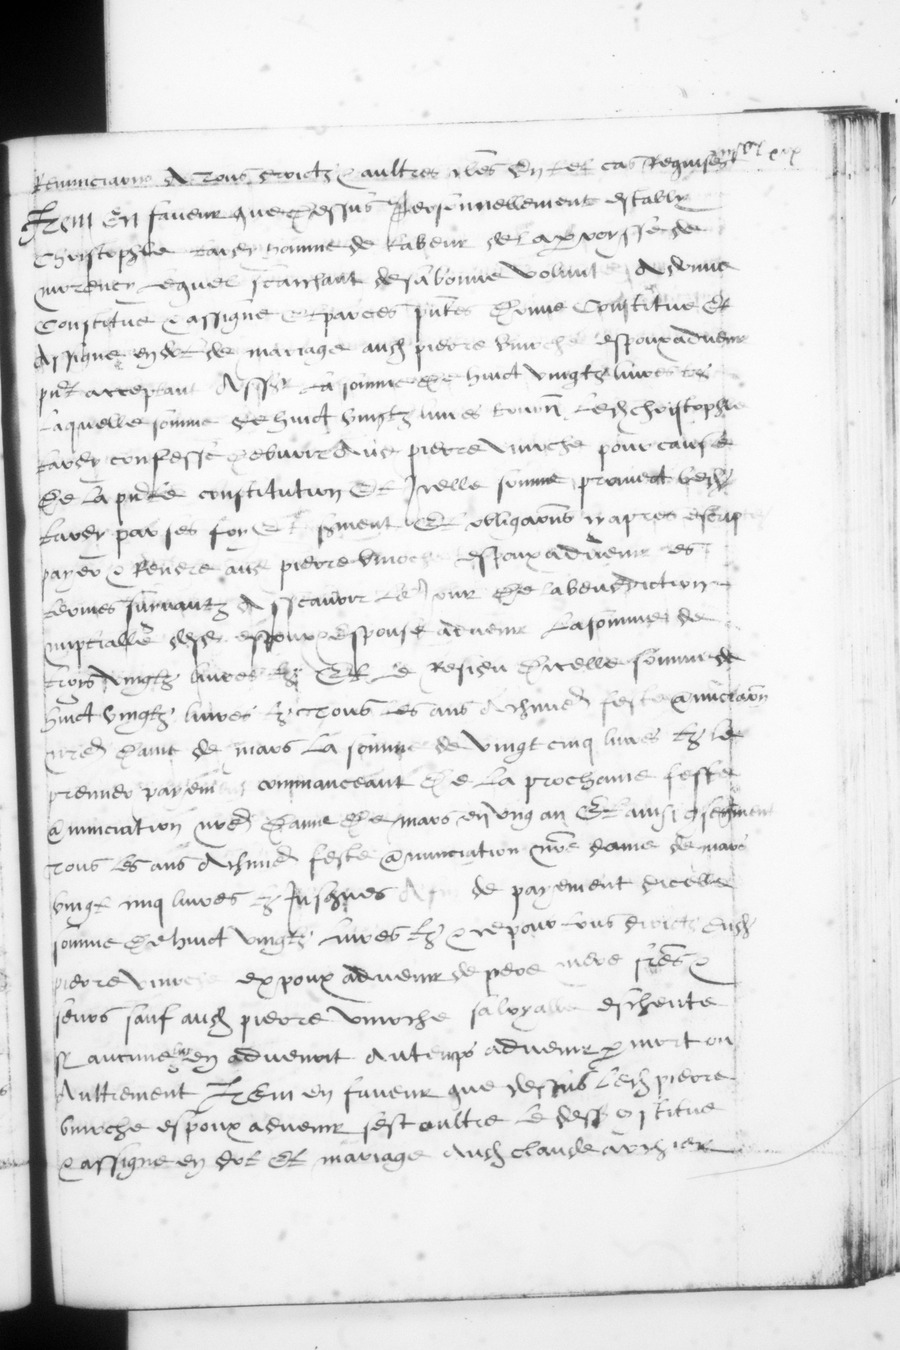 Renunciations A tous droictz & aultres en tel cas Requises
Item En faveur que dessus Personnellement estably
Christophle Laver homme de Labeur de la parroysse de
morency lequel scaichant de sa bonne volunte A donne
Constitue & assigne Et par ces pntes donne Constitue Et
Assigne en dot de mariage aud pierre vinoche espoux advenir
pnt acceptant Assr La somme de huict vingtz livres tz
Laquelle somme de huict vingtz livres tourn Led christophle
Laver confesse debvoir Aud pierre vinoche pour cause
De la pnte constitution Et Icelle somme promect led
Laver par ses foy Et serment Et obligaons cy apres escriptes
payer & Rendre aud pierre vinoche espoux advenir es
termes suivantz Asscavoir Le Jour de la benediction
nuptialle desd espoux & espouse advenir La somme de
trois vingtz livres tz Et Le Residu dicelle somme de
huict vingtz livres tz Tous Les ans A chune feste anunciaon
nre dame de mars La somme de vingt cinq livres tz le
premier payement commanceant De La prochaine feste
anunciation nre dame De mars en ung an Et ainsi consequment
Tous Les ans A chune feste anunciation nre dame de mars
vingt cinq livres tz Jusques A fin de payement dicelle
somme De huict vingtz Livres tz & ce pour tous droictz dud
pierre vinoche expoux advenir de pere mere freres &
seurs sauf aud pierre vinoche sa loyalle escheute
sy aucune luy en advenoit Au temps advenir p mort ou
Aultrement Item en faveur que dessus Led pierre
vinoche espoux advenir sest oultre Le dess constitue
& assigne en dot Et mariage Aud claude